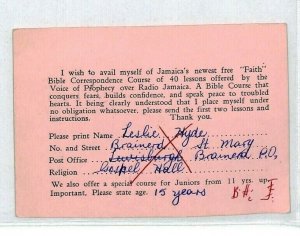 I wish to avail myself of Jamaica's newest free "Faith"
Bible Correspondence Course of 40 lessons offered by the
Voice of Prophecy over Radio Jamaica. A Bible Course that
conquers fears, builds confidence, and speak peace to troubled
hearts. It being clearly understood that I would be placed under
no obligation whatsoever, please send the first two lessons and
instructions.
Thank you.
Please print Name Leslie Hyde
No. and Street Brainerd St. Mary
Post Office Lewisburgh Brainerd P.O,
Religion Gospel Hall
We also offer a special course for Juniors from 11 yrs. up.
Important, Please state age. 15 years